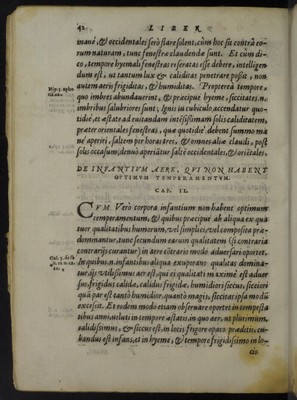 42 LIBER
mane, & occidentales sero stare solent, cum hoc sit contra eo-
rum naturam, tunc fenestra claudenda sunt. Et cum di-
co, tempore hyemali fenestras reseratas esse debere, intelligen-
dum est, ut tantum lux & caliditas penetrare possit, non
autem aeris frigiditas, & humiditas. Propterea tempore,
quo imbres abundauerint, & præcipuè hyeme, siccitates in
imbribus salubriores sunt, ignis in cubiculo accendatur quo-
tidie, et æstate ad euitandam intensissimam solis caliditatem,
præter orientales fenestras, quæ quotidie debent summo ma
ne aperiri, saltem per horas tres, & omnes aliæ claudi, post
solis occasum, denuo aperiatur saltē occidentales, & boreales.
DE INFANTIVM AERE, QVI NON HABENT
OPTIMVM TEMPERAMENTVM.
CAP. II.
CVM Verò corpora infantium non habent optimum
temperamentum, & quibus præcipuè ab aliqua ex qua
tuor qualitatibus humorum, vel simplici, vel composita præ-
dominantur, tunc secundum earum qualitatem (si contraria
contrarijs curantur) in aere cæterisq modo aduersari oportet.
In quibus n. infantibus aliqua exuperans qualitas domina-
tur, ijs utilissimus aer est, qui ei qualitati maximè est aduer
sus, frigidus calidæ, calidus frigidæ, humidiori siccus, sicciori
quà par est tantò humidior, quantò magis, siccitas ipsa modū
excesserit. Et eodem modo etiam obseruare oportet in tempesta
tibus anni, ueluti in tempore æstatis, in quo aer, ut plurimum,
calidissimus, & siccus est, in locis frigore opaco præditis, cu-
bandus est infans, et in hyeme, & tempore frigidissimo in lo-
cis